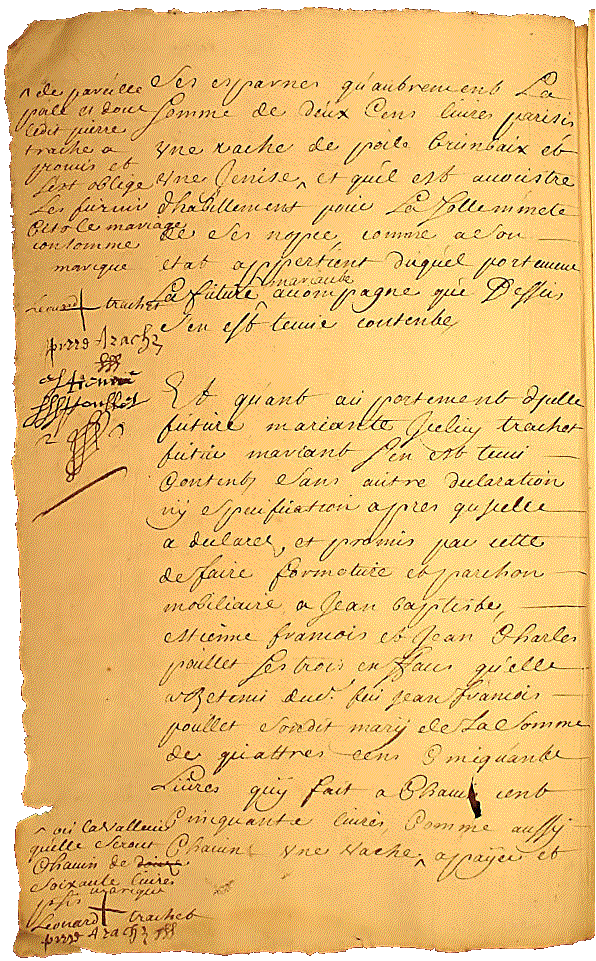 ^ de pareille
poile et dont
ledit pierre
trache a
promis et
s'est oblige
Les furnir
le mariage
consomme
marique
Leonard + trachet
pierre trache
ses esparnes qu'autrement La
somme de deux Cens livres parisis
une vache de poile brunbaix et
une Jenise ^ et quel est
d'habillement pour La Sollemnete
de ses nopce, comme a son
etat appertient duquel portement
La future ^ mariante acompagne que Dessus
s'en est tenue contente
Et quant au portement d'jcelle
future mariante trachet
futur mariant s'en est tenu
Content sans autre declaration
ny espesification apres qu'jcelle
a declaret, et promis par cette
de faire formoture et parchon
mobiliaire a Jean baptiste,
estienne francois et Jean Charles
poullet ses trois enffans qu'elle
a Retenu dud. feu Jean francois
poullet sondit mary de La somme
de quattres cens Cinquante
Livres quy fait a Chacun cent
Cinquante livres, Comme aussy
Chacun une vache ^ a payer et
^ ou la valleur
quelle seront
Chacun de
soixante livres
psis marique
Leonard + trachet
pierre trache